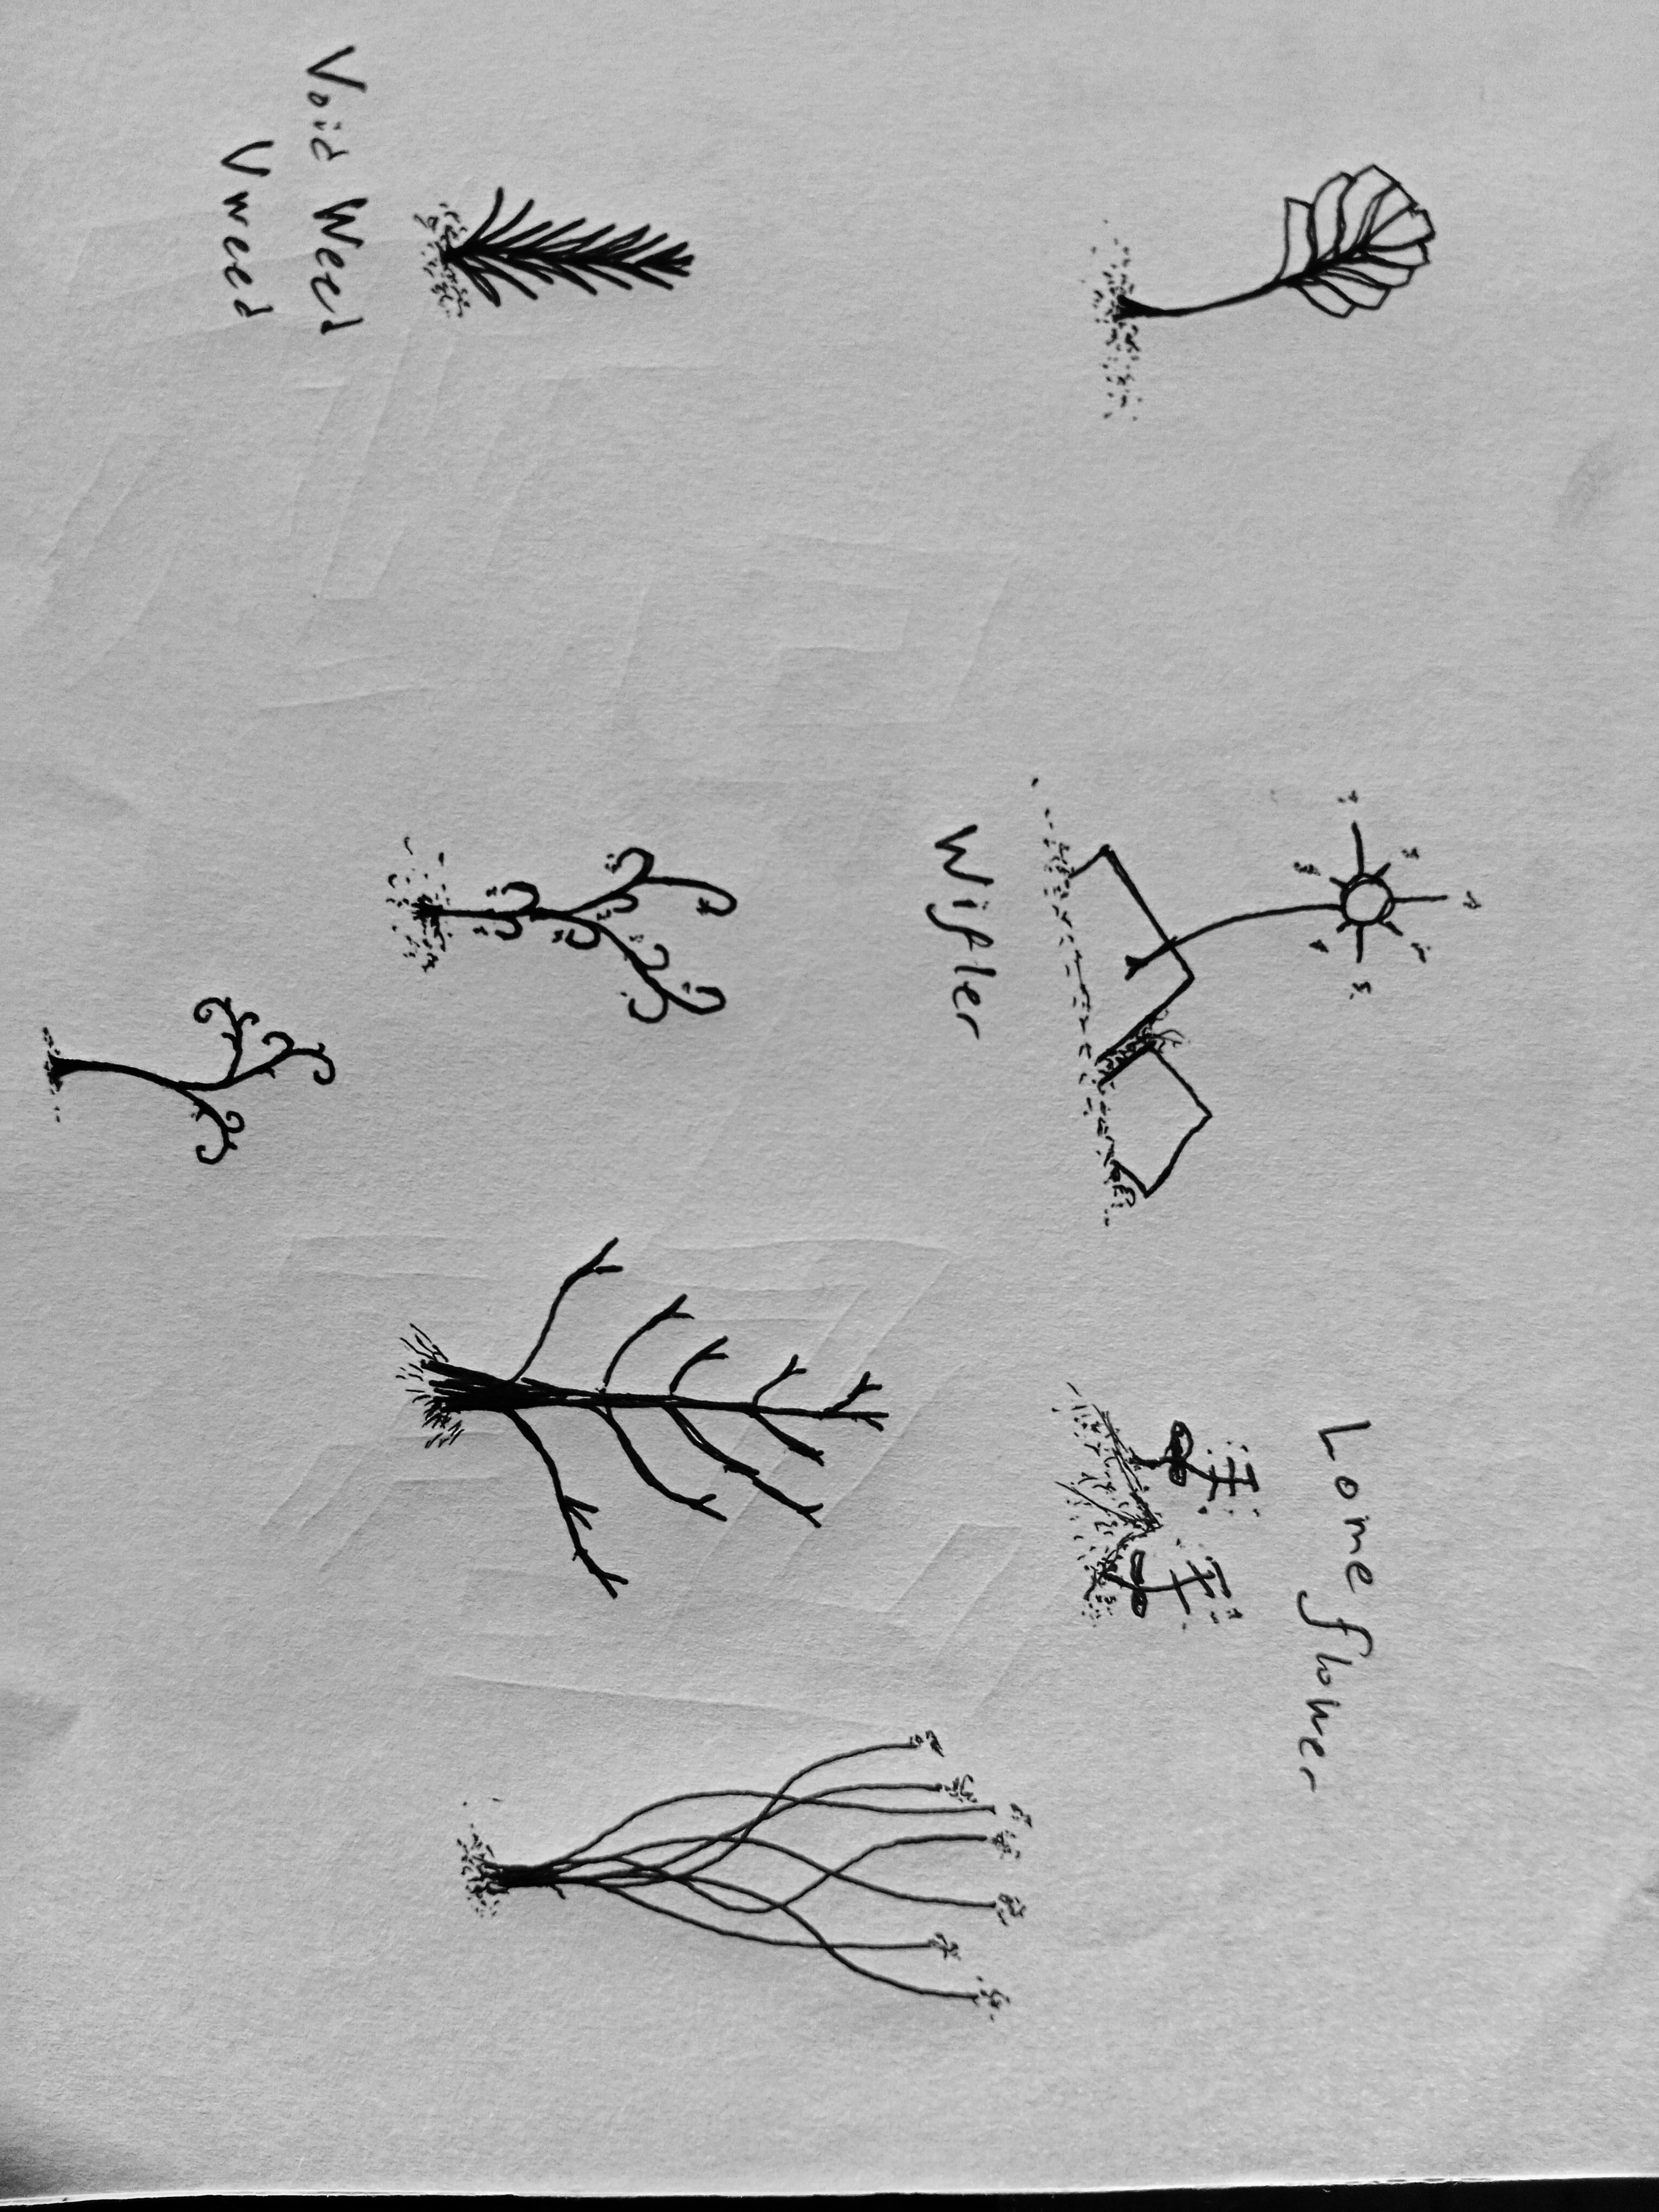 Lome flower
Wifler
Void Weed
Vweed